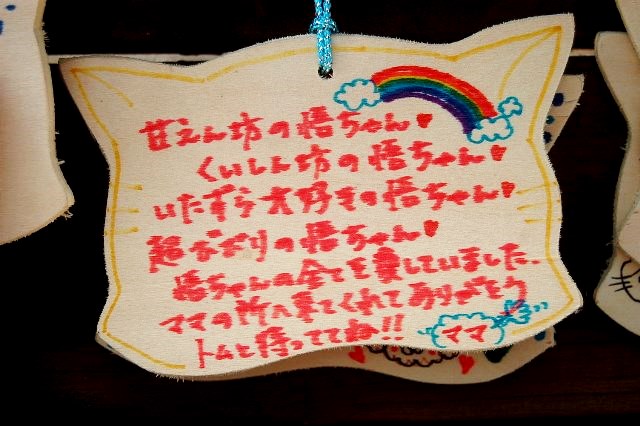 甘えん坊の悟ちゃん♥
くいしん坊の悟ちゃん♥
いたずら大好きの悟ちゃん♥
超ビビリの悟ちゃん♥
悟ちゃんの全てを愛していました.
ママの所へ来てくれてありがとう
トムと待っててね!!
ママ